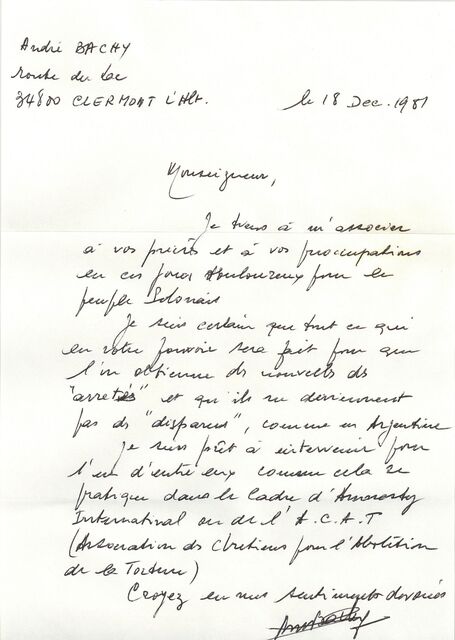 André BACHY
route du Lac
34800 CLERMONT L'Hlt.
le 18 Dec. 1981
Monseigneur,
Je tiens à m'associer
à vos prières et à vos préoccupations
en ces jours douloureux pour le
peuple Polonais
Je suis certain que tout ce qui
en votre pouvoir sera fait pour que
l'on obtienne des nouvelles des
"arretés" et qu'ils ne deviennent
pas des "disparus", comme en Argentine
Je suis prêt à intervenir pour
l'un d'entre eux comme cela se
pratique dans le Cadre d'Amnesty
International ou de l'A.C.A.T
(Association des Chretiens pour l'Abolition
de la Torture)
Croyez en mes sentiments dévoués